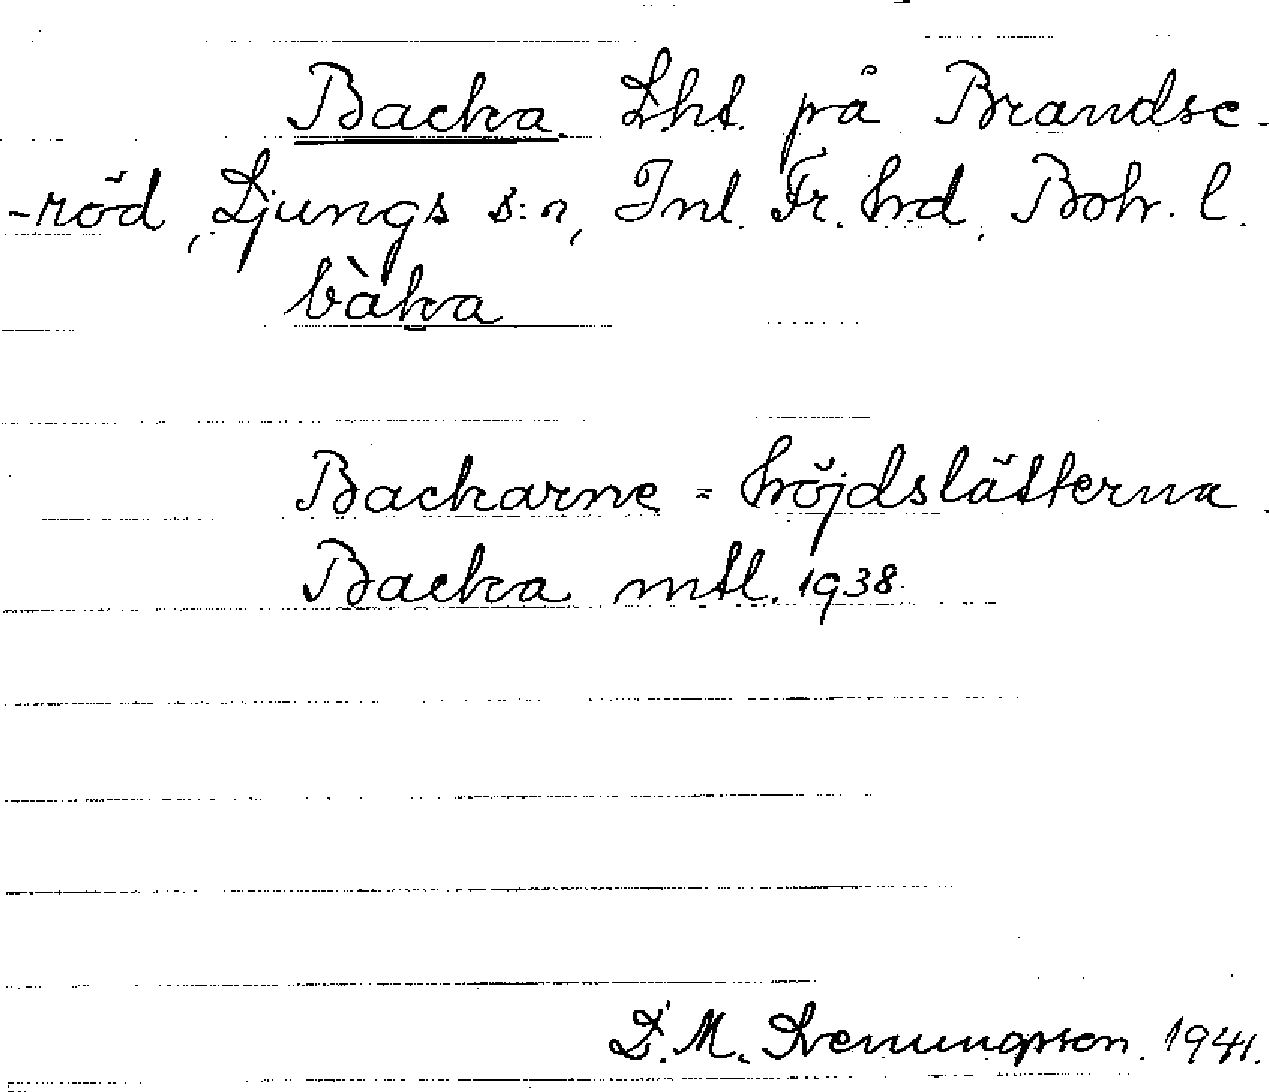 Backa Lht. på Brandse-
-röd, Ljungs s:n, Inl. Fr. hrd, Boh. l.
bàka
Backarne = höjdslätterna.
Backa mtl. 1938.
D. M. Svenungsson. 1941.